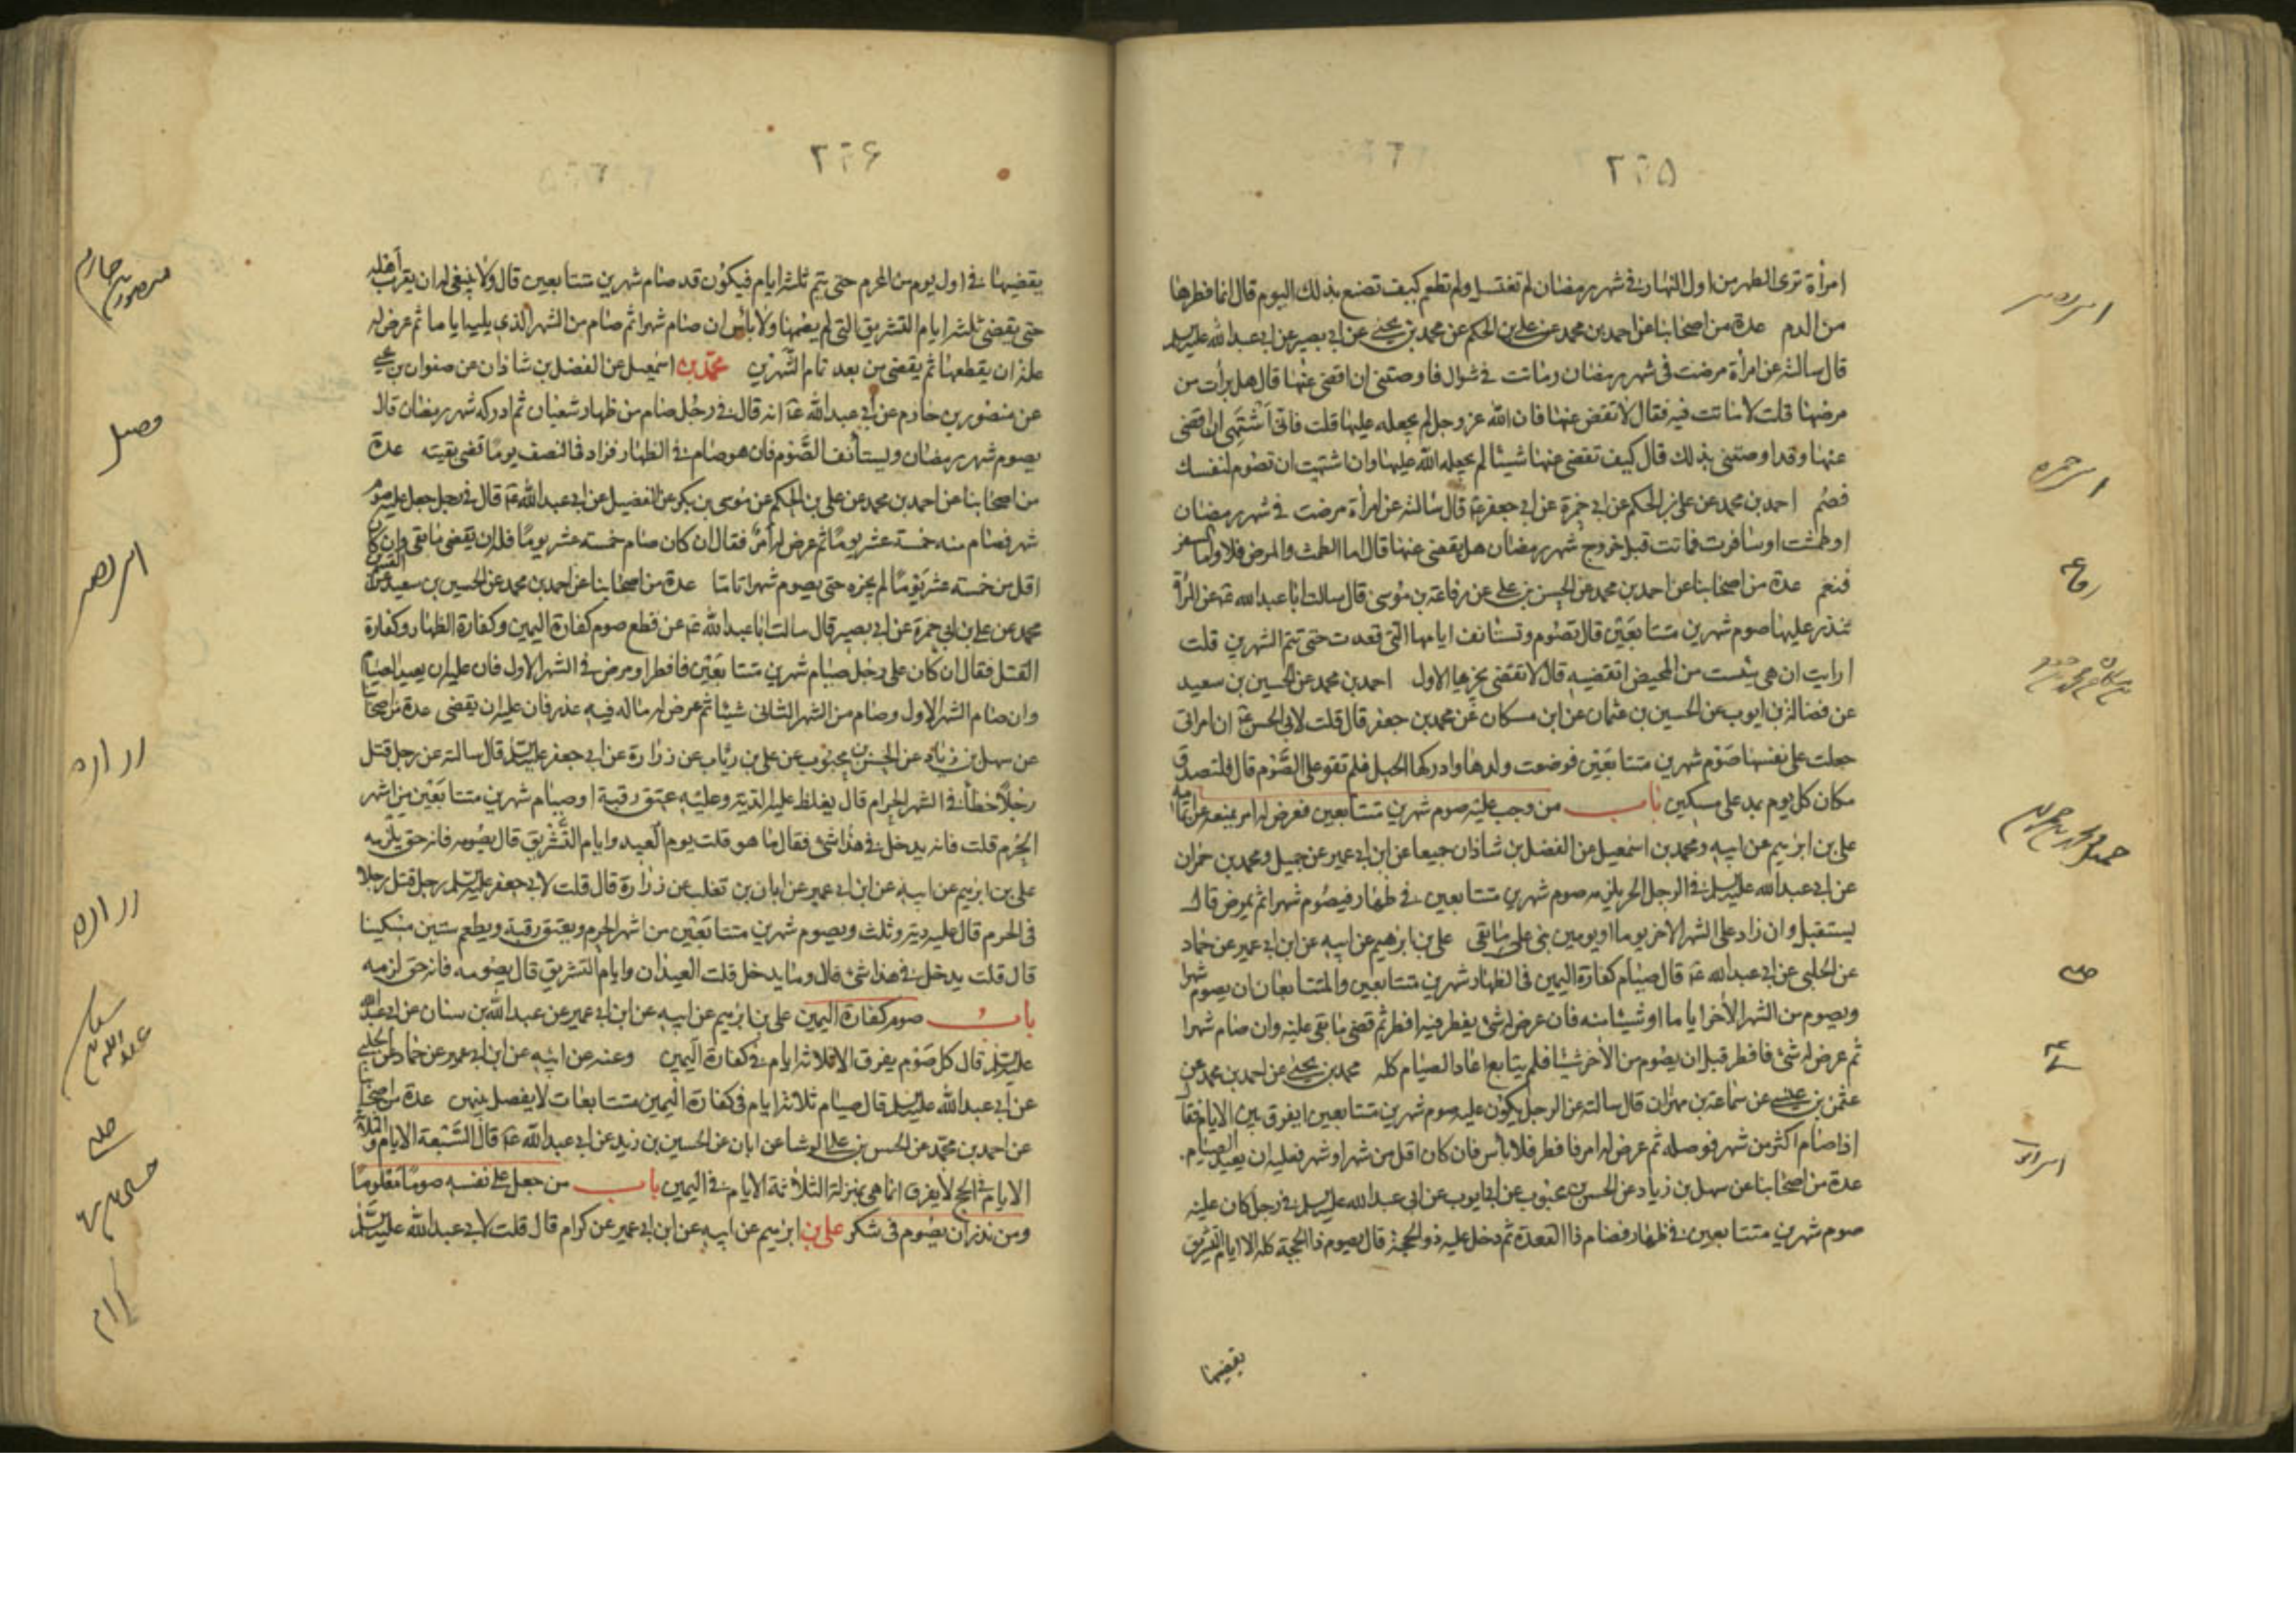 ۲۲۵
امرأة ترى الطهر من اول النهار في شهر رمضان لم تغتسل ولم تطعم كيف تصنع بذلك اليوم قال انما فطرها
من الدم عدة من اصحابنا عن احمد بن محمد عن علي بن الحكم عن محمد بن يحيى عن ابي بصير عن ابي عبد الله عليه السلم
قال سالته عن امرأة مرضت في شهر رمضان وماتت في شوال فاوصتني ان اقضي عنها قال هل برأت من
مرضها قلت لا ماتت فيه فقال لا تقض عنها فان الله عز وجل لم يجعله عليها قلت فاني اشتهي ان اقضي
عنها وقد اوصتني بذلك قال كيف تقضي عنها شيئا لم يجعله الله عليها وان اشتهيت ان تصوم لنفسك
فصم احمد بن محمد عن علي بن الحكم عن ابي حمزة عن ابي جعفر ع قال سالته عن امرأة مرضت في شهر رمضان
او طمثت او سافرت فماتت قبل خروج شهر رمضان هل يقضى عنها قال اما الطمث والمرض فلا واما السفر
فنعم عدة من اصحابنا عن احمد بن محمد عن الحسن بن علي عن رفاعة بن موسى قال سالت ابا عبد الله ع عن المرأة
تنذر عليها صوم شهرين متتابعين قال تصوم وتستانف ايامها التي قعدت حتى تتم الشهرين قلت
ارايت ان هي يئست من المحيض اتقضيه قال لا تقضي يجزيها الاول احمد بن محمد عن الحسين بن سعيد
عن فضالة بن ايوب عن الحسين بن عثمان عن ابن مسكان عن محمد بن جعفر قال قلت لابي الحسن ع ان امراتي
جعلت على نفسها صوم شهرين متتابعين فوضعت ولدها وادركها الحبل فلم تقو على الصوم قال فلتصدق
مكان كل يوم بمد على مسكين باب من وجب عليه صوم شهرين متتابعين فعرض له امر يمنعه عن اتمامه
علي بن ابرهيم عن ابيه ومحمد بن اسمعيل عن الفضل بن شاذان جميعا عن ابن ابي عمير عن جميل ومحمد بن حمران
عن ابي عبد الله عليه السلم في الرجل الحر يلزمه صوم شهرين متتابعين في ظهار فيصوم شهرا ثم يمرض قال
يستقبل وان زاد على الشهر الاخر يوما او يومين بنى على ما بقي علي بن ابرهيم عن ابيه عن ابن ابي عمير عن حماد
عن الحلبي عن ابي عبد الله ع قال صيام كفارة اليمين في الظهار شهرين متتابعين والمتتابعان ان يصوم شهرا
ويصوم من الشهر الاخر اياما او شيئا منه فان عرض له شئ يفطر فيه افطر ثم قضى ما بقي عليه وان صام شهرا
ثم عرض له شئ فافطر قبل ان يصوم من الاخر شيئا فلم يتابع اعاد الصيام كله محمد بن يحيى عن احمد بن محمد عن
عثمن بن عيسى عن سماعة بن مهران قال سالته عن الرجل يكون عليه صوم شهرين متتابعين ايفرق بين الايام فقال
اذا صام اكثر من شهر فوصله ثم عرض له امر فافطر فلا بأس فان كان اقل من شهر او شهر فعليه ان يعيد الصيام
عدة من اصحابنا عن سهل بن زياد عن الحسن بن محبوب عن ابي ايوب عن ابي عبد الله عليه السلم في رجل كان عليه
صوم شهرين متتابعين في ظهار فصام ذا القعدة ثم دخل عليه ذو الحجة قال يصوم ذا الحجة كله الا ايام التشريق
يقضيها
رفاعه
۲۲۶
يقضيها في اول يوم من المحرم حتى يتم ثلثة ايام فيكون قد صام شهرين متتابعين قال ولا ينبغي له ان يقرب اهله
حتى يقضي ثلثة ايام التشريق التي لم يصمها ولا بأس ان صام شهرا ثم صام من الشهر الذي يليه اياما ثم عرض له
علة ان يقطعها ثم يقضي من بعد تمام الشهرين محمد بن اسمعيل عن الفضل بن شاذان عن صفوان بن يحيى
عن منصور بن حازم عن ابي عبد الله ع انه قال في رجل صام من ظهار شعبان ثم ادركه شهر رمضان قال
يصوم شهر رمضان ويستأنف الصوم فان هو صام في الظهار فزاد في النصف يوما قضى بقيته عدة
من اصحابنا عن احمد بن محمد عن علي بن الحكم عن موسى بن بكر عن الفضيل عن ابي عبد الله ع قال في رجل جعل عليه صوم
شهر فصام منه خمسة عشر يوما ثم عرض له امر فقال ان كان صام خمسة عشر يوما فله ان يقضي ما بقي وان كان
اقل من خمسة عشر يوما لم يجزه حتى يصوم شهرا تاما عدة من اصحابنا عن احمد بن محمد عن الحسين بن سعيد عن القسم بن
محمد عن علي بن ابي حمزة عن ابي بصير قال سالت ابا عبد الله ع عن قطع صوم كفارة اليمين وكفارة الظهار وكفارة
القتل فقال ان كان على رجل صيام شهرين متتابعين فافطر او مرض في الشهر الاول فان عليه ان يعيد الصيام
وان صام الشهر الاول وصام من الشهر الثاني شيئا ثم عرض له ماله فيه عذر فان عليه ان يقضي عدة من اصحابنا
عن سهل بن زياد عن الحسن بن محبوب عن علي بن رئاب عن زرارة عن ابي جعفر عليه السلم قال سالته عن رجل قتل
رجلا خطأ في الشهر الحرام قال يغلظ عليه الدية وعليه عتق رقبة او صيام شهرين متتابعين من اشهر
الحرم قلت فانه يدخل في هذا شئ فقال ما هو قلت يوم العيد وايام التشريق قال يصومه فانه حق يلزمه
علي بن ابرهيم عن ابيه عن ابن ابي عمير عن ابان بن تغلب عن زرارة قال قلت لابي جعفر عليه السلم رجل قتل رجلا
في الحرم قال عليه دية وثلث ويصوم شهرين متتابعين من اشهر الحرم ويعتق رقبة ويطعم ستين مسكينا
قال قلت يدخل في هذا شئ قال وما يدخل قلت العيدان وايام التشريق قال يصومه فانه حق لزمه
باب صوم كفارة اليمين علي بن ابرهيم عن ابيه عن ابن ابي عمير عن عبد الله بن سنان عن ابي عبد الله
عليه السلم قال كل صوم يفرق الا ثلاثة ايام في كفارة اليمين وعنه عن ابيه عن ابن ابي عمير عن حماد عن الحلبي
عن ابي عبد الله عليه السلم قال صيام ثلاثة ايام في كفارة اليمين متتابعات لا يفصل بينهن عدة من اصحابنا
عن احمد بن محمد عن الحسن بن علي الوشا عن ابان عن الحسين بن زيد عن ابي عبد الله ع قال السبعة الايام والثلاثة
الايام في الحج لا يفرق انما هي بمنزلة الثلاثة الايام في اليمين باب من جعل على نفسه صوما معلوما
ومن نذر ان يصوم في شكر علي بن ابرهيم عن ابيه عن ابن ابي عمير عن كرام قال قلت لابي عبد الله عليه السلم
منصور بن حازم
فضيل
ابو بصير
زراره
زراره
عبد الله بن سنان
كرام